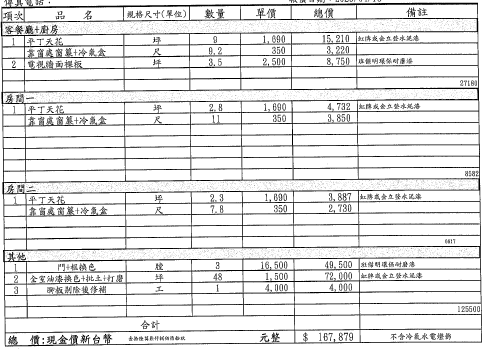 項次 品名 規格尺寸(單位) 數量 單價 總價 備註
客餐廳+廚房
1 平丁天花 坪 9 1,690 15,210 虹牌或金立登水泥漆
靠窗處窗簾+冷氣盒 尺 9.2 350 3,220
2 電視牆面裸板 坪 3.5 2,500 8,750
27180
房間一
1 平丁天花 坪 2.8 1,690 4,732 虹牌或金立登水泥漆
靠窗處窗簾+冷氣盒 尺 11 350 3,850
8582
房間二
1 平丁天花 坪 2.3 1,690 3,887 虹牌或金立登水泥漆
靠窗處窗簾+冷氣盒 尺 7.8 350 2,730
6617
其他
1 門+框換色 樘 3 16,500 49,500
2 全室油漆換色+批土+打磨 坪 48 1,500 72,000 虹牌或金立登水泥漆
3 腳板剔除後修補 工 1 4,000 4,000
125500
合計
總價:現金價新台幣 元整 $ 167,879 不含冷氣水電燈飾